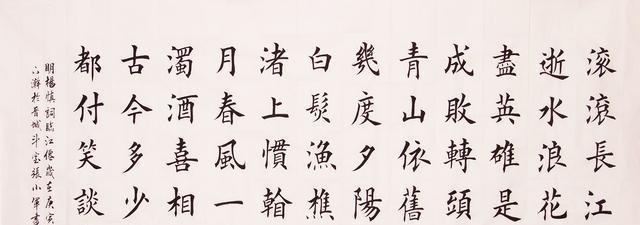 滚滾長江
逝水浪花
盡英雄是
成敗轉頭
青山依舊
幾度夕陽
白髮漁樵
渚上慣看
月春風一
濁酒喜相
古今多少
都付笑談
明楊慎詞臨江僊歲在庚寅
於晋城斗室張小軍書